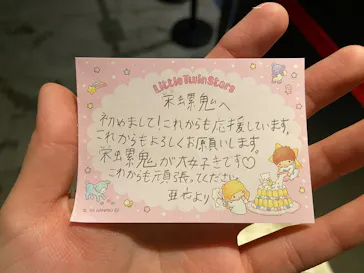 Little Twin Stars
栄螺鬼へ
初めまして！これからも応援しています。
これからもよろしくお願いします。
栄螺鬼が大好きです♡
これからも頑張ってください。
より